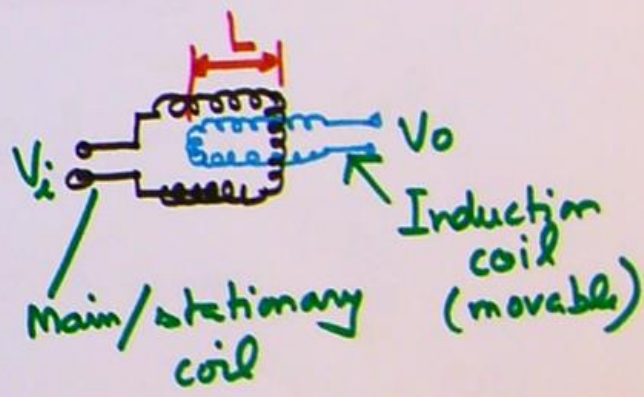 L
Vi
Vo
Induction
coil
(movable)
Main/stationary
coil